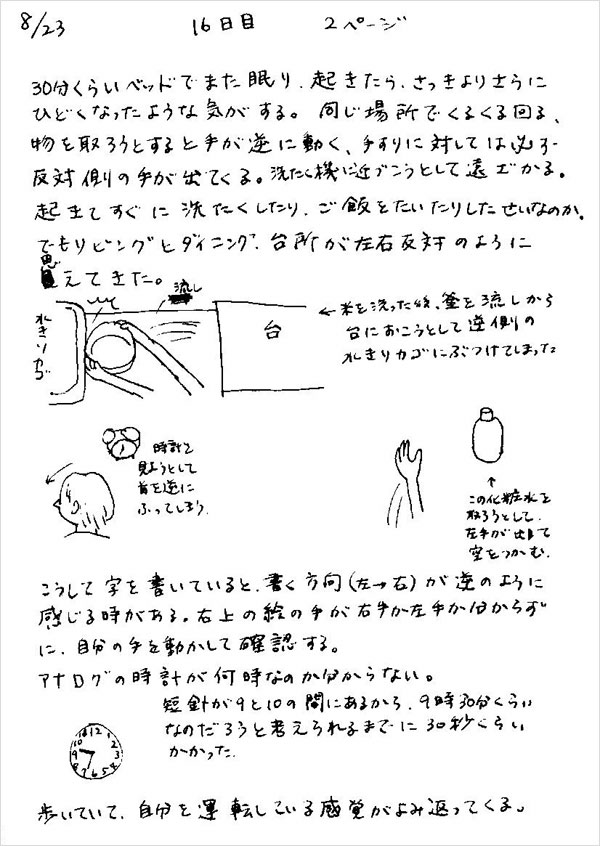 8/23 16日目 2ページ
30分くらいベッドでまた眠り、起きたら、さっきよりさらに
ひどくなったような気がする。同じ場所でくるくる回る、
物を取ろうとすると手が逆に動く、手すりに対しては必ず
反対側の手が出てくる。洗たく機に近づこうとして遠ざかる。
起きてすぐに洗たくしたり、ご飯をたいたりしたせいなのか。
でもリビングとダイニング、台所が左右反対のように
思えてきた。
流し
水きりカゴ
台
←米を洗った後、釜を流しから
台におこうとして逆側の
水きりカゴにぶつけてしまった
時計を
見ようとして
首を逆に
ふってしまう。
↑
この化粧水を
取ろうとして、
左手が出て
空をつかむ。
こうして字を書いていると、書く方向(左→右)が逆のように
感じる時がある。右上の絵の手が右手か左手か分からず
に、自分の手を動かして確認する。
アナログの時計が何時なのか分からない。
短針が9と10の間にあるから、9時30分くらい
なのだろうと考えられるまでに30秒くらい
かかった。
12 1 2 3 4 5 6 7 8 9 10 11
歩いていて、自分を運転している感覚がよみ返ってくる。